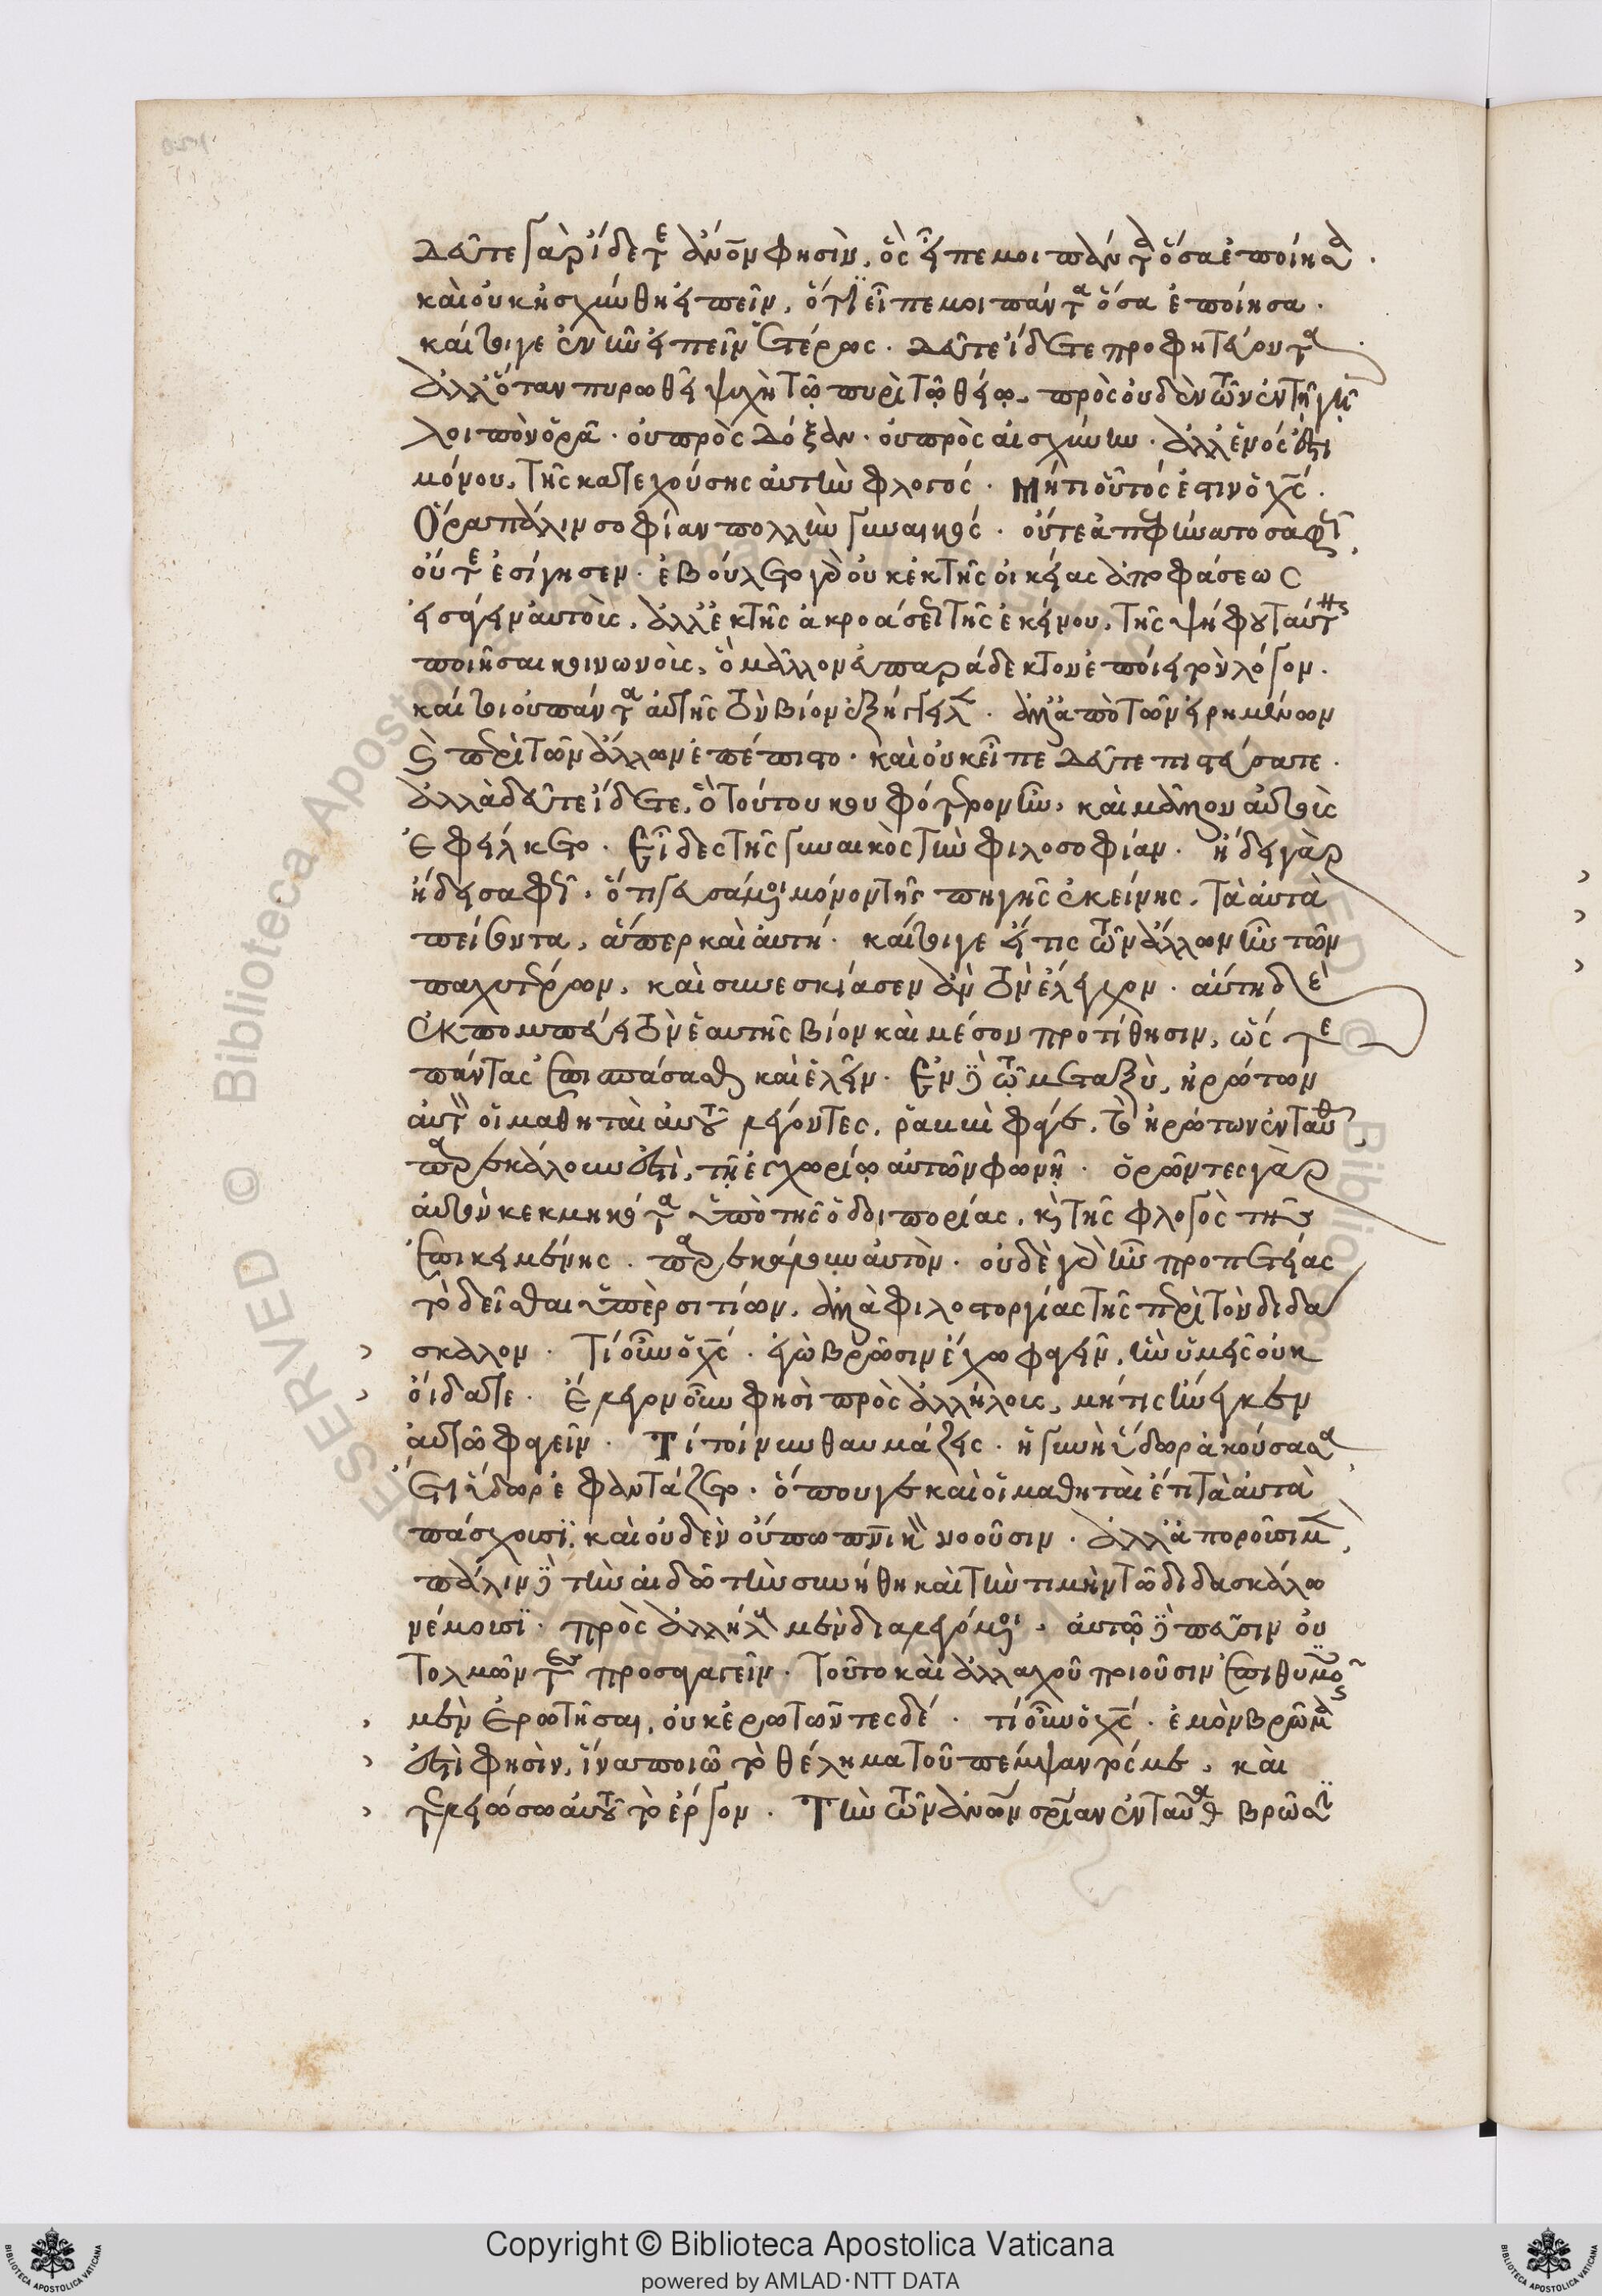 Δεῦτε γὰρ ἴδετε ἄνον φησὶν, ὃς εἶπέ μοι πάντα ὅσα ἐποίησα.
καὶ οὐκ ᾐσχύνθη εἰπεῖν, ὅτι εἶπέ μοι πάντα ὅσα ἐποίησα.
καίτοιγε ἐνῆν εἰπεῖν ἑτέρως. Δεῦτε ἴδετε προφητεύοντα.
ἀλλ' ὅταν πυρωθῇ ψυχὴ τῷ πυρὶ τῷ θείῳ, πρὸς οὐδὲν τῶν ἐν τῇ γῇ
λοιπὸν ὁρᾷ. οὐ πρὸς δόξαν. οὐ πρὸς αἰσχύνην. ἀλλ' ἑνός ἐστι
μόνου, τῆς κατεχούσης αὐτὴν φλογός. Μήτι οὗτός ἐστιν ὁ χς.
Ὅρα πάλιν σοφίαν πολλὴν γυναικός. οὔτε ἀπεφήνατο σαφῶς,
οὔτε ἐσίγησεν. ἐβούλετο γὰρ οὐκ ἐκ τῆς οἰκείας ἀποφάσεως
εἰσαγαγεῖν αὐτούς, ἀλλ' ἐκ τῆς ἀκροάσεως τῆς ἐκείνου, τῆς ψήφου ταύτης
ποιῆσαι κοινωνούς, ὃ μᾶλλον εὐπαράδεκτον ἐποίει τὸν λόγον.
καίτοι οὐ πάντα αὐτῆς τὸν βίον ἐξήγγειλεν. ἀλλ' ἀπὸ τῶν εἰρημένων
καὶ περὶ τῶν ἄλλων ἐπέπειστο. καὶ οὐκ εἶπε Δεῦτε πιστεύσατε.
ἀλλὰ δεῦτε ἴδετε, ὃ τούτου κουφότερον ἦν, καὶ μᾶλλον αὐτοὺς
ἐφείλκετο. Εἶδες τῆς γυναικὸς τὴν φιλοσοφίαν. ᾔδει γὰρ
ᾔδει σαφῶς, ὅτι γευσάμενοι μόνον τῆς πηγῆς ἐκείνης, τὰ αὐτὰ
πείσονται, ἅπερ καὶ αὐτή. καίτοιγε εἴ τις τῶν ἄλλων ἦν τῶν
παχυτέρων, καὶ συνεσκίασεν ἂν τὸν ἔλεγχον. αὕτη δὲ
ἐκπομπεύει τὸν ἑαυτῆς βίον καὶ μέσον προτίθησιν, ὥστε
πάντας ἐπισπάσασθαι καὶ ἑλεῖν. Ἐν δὲ τῷ μεταξὺ, ἠρώτων
αὐτὸν οἱ μαθηταὶ αὐτοῦ λέγοντες, ῥαββὶ φάγε. τὸ ἠρώτων ἐνταῦθα,
παρεκάλουν ἐστὶ, τῇ ἐγχωρίῳ αὐτῶν φωνῇ. ὁρῶντες γὰρ
αὐτὸν κεκμηκότα ὑπὸ τῆς ὁδοιπορίας, καὶ τῆς φλογὸς τῆς
ἐπικειμένης. παρεκάλουν αὐτόν. οὐδὲ γὰρ ἦν προπετείας
τὸ δεῖσθαι ὑπὲρ σιτίων, ἀλλὰ φιλοστοργίας τῆς περὶ τὸν διδά
σκαλον. Τί οὖν ὁ χς. ἐγὼ βρῶσιν ἔχω φαγεῖν, ἣν ὑμεῖς οὐκ
οἴδατε. Ἔλεγον οὖν φησὶ πρὸς ἀλλήλους, μή τις ἤνεγκεν
αὐτῷ φαγεῖν. Τί τοίνυν θαυμάζεις. ἡ γυνὴ ὕδωρ ἀκούσασα,
ἔτι ὕδωρ ἐφαντάζετο. ὅπου γε καὶ οἱ μαθηταὶ ἔτι τὰ αὐτὰ
πάσχουσι, καὶ οὐδὲν οὔπω πνικὸν νοοῦσιν. ἀλλ' ἀποροῦσι μὲν,
πάλιν δὲ τὴν αἰδῶ τὴν συνήθη καὶ τὴν τιμὴν τῷ διδασκάλῳ
νέμουσι. πρὸς ἀλλήλους μὲν διαλεγόμενοι. αὐτῷ δὲ πεῦσιν οὐ
τολμῶντες προσαγαγεῖν. Τοῦτο καὶ ἀλλαχοῦ ποιοῦσιν ἐπιθυμοῦντες
μὲν ἐρωτῆσαι, οὐκ ἐρωτῶντες δέ. τί οὖν ὁ χς. ἐμὸν βρῶμά
ἐστι φησὶν, ἵνα ποιῶ τὸ θέλημα τοῦ πέμψαντός με, καὶ
τελειώσω αὐτοῦ τὸ ἔργον. Τὴν τῶν ἀνων σρίαν ἐνταῦθα βρῶσιν